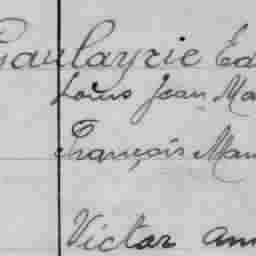 Gaulayrie Ed
Louis Jean Ma
François Mau
Victor Ann